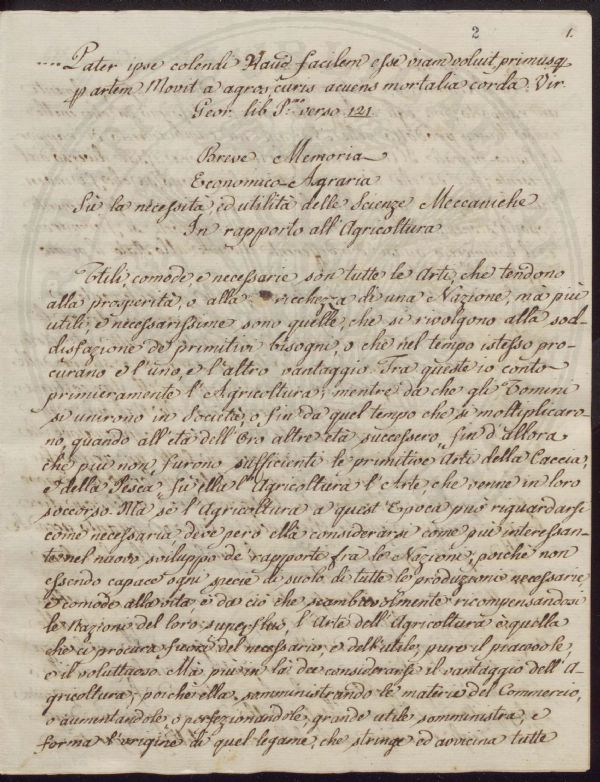 2 1.
.... Pater ipse colendi Haud facilem esse viam voluit, primusq
p artem Movit a agros, curis acuens mortalia corda. Vir.
Geor. lib P.mo verso 121.
Breve Memoria
Economico-Agraria
Sù la necessità, ed utilità delle Scienze Meccaniche
In rapporto all'Agricoltura
Utili, comode, e necessarie son tutte le Arti, che tendono
alla prosperità, o alla ricchezza di una Nazione, mà più
utili, e necessarissime sono quelle, che si rivolgono alla sod-
disfazione de' primitivi bisogni, o che nel tempo istesso pro-
curano e l'uno, e l'altro vantaggio. Tra queste io conto
primieramente l'Agricoltura; mentre da che gli Uomini
si unirono in Società, o fin da quel tempo che si moltiplicaro-
no, quando all'età dell'Oro altre età successero, fin d'allora
che più non furono sufficienti le primitive Arti della Caccia,
e della Pesca, fù ella l'Agricoltura l'Arte, che venne in loro
soccorso. Ma se l'Agricoltura a quest'Epoca può riguardarsi
come necessaria deve però ella considerarsi come più interessan-
te nel nuovo sviluppo de' rapporti fra le Nazione, poichè non
essendo capace ogni specie di suolo di tutte le produzioni necessarie,
e comode alla vita, e da ciò che scambievolmente ricompensandosi
le Nazioni del loro superfluo, l'Arte dell'Agricoltura è quella
che ci procura fuori del necessario, e dell'utile, pure il piacevole,
e il voluttuoso. Mà più in là dee considerarsi il vantaggio dell'A-
gricoltura; poichè ella, somministrando le materie del Commercio,
o aumentandole, o perfezionandole, grande utile somministra, e
forma l'origine di quel legame, che stringe ed avvicina tutte